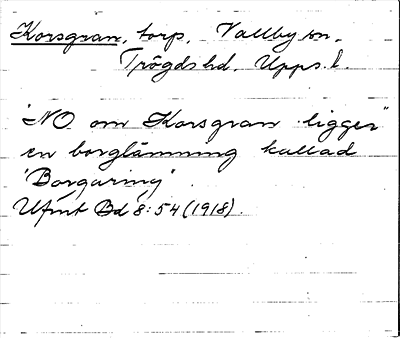 Korsgran, torp, Vallby sn.
Trögds hd. Upps. l.
"NO om Korsgran ligger"
en borglämning kallad
'Borgaring'.
Ufmt Bd 8:54 (1918).